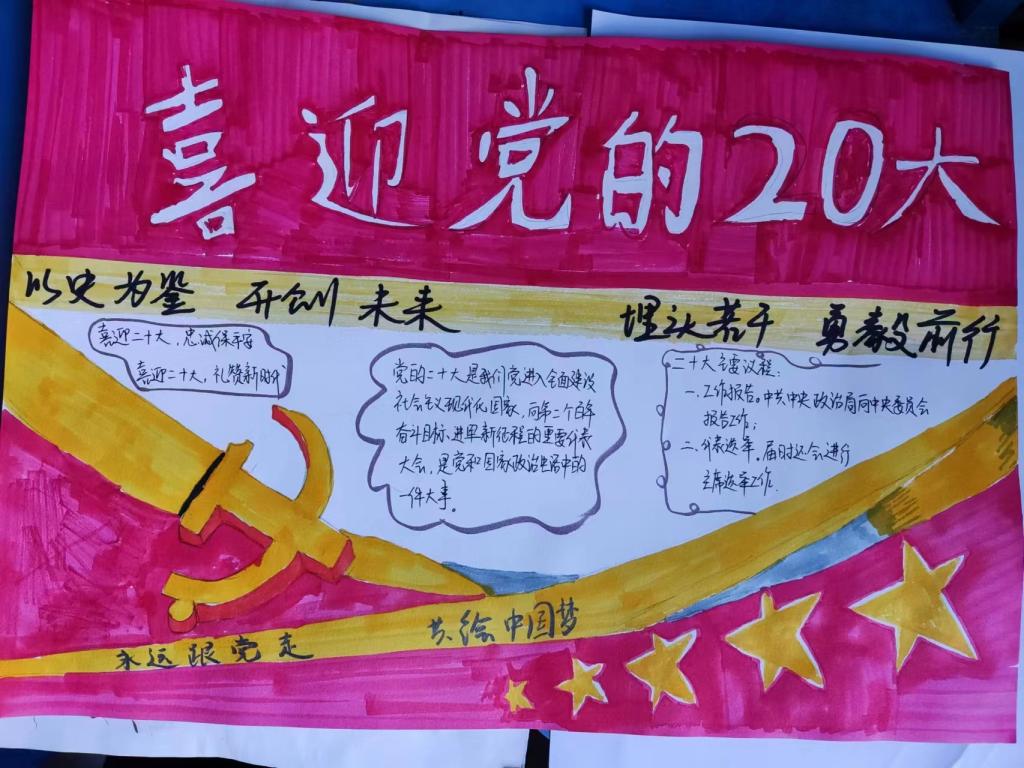 喜迎党的20大
以史为鉴 开创未来
埋头苦干 勇毅前行
喜迎二十大,忠诚保平安
喜迎二十大,礼赞新时代
党的二十大是我们党进入全面建设
社会主义现代化国家,向第二个百年
奋斗目标进军新征程的重要代表
大会,是党和国家政治生活中的
一件大事。
二十大主要议程:
一、工作报告。中共中央政治局向中央委员会
报告工作;
二、代表选举。届时还会进行
主席选举工作.
永远跟党走
共绘中国梦